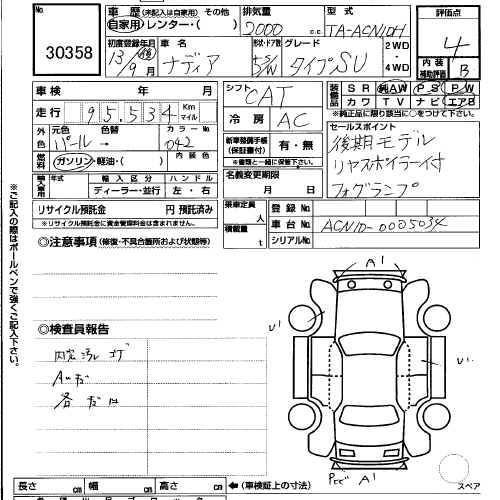 30358
車歴(未記入は自家用) その他
自家用・レンター・( )
排気量
2000 c.c.
型式
TA-ACN10H
評価点
4
初度登録年月
13/9月
車名
ナディア
形状・ドア数
5D/W
グレード
タイプSU
2WD
4WD
内装
補助評価
B
車検 年 月
シフト
CAT
装備品
SR 純AW PS PW
カワ TV ナビ エアB
*純正品に限り該当に○で囲む
走行 95,534 Km マイル
冷房
AC
セールスポイント
後期モデル
リヤスポイラー付
フォグランプ
外色
元色
パール→
色替
カラーNo
042
新車整備手帳
(保証書付)
有・無
燃料
ガソリン・軽油・( )
内装色
名義変更期限
月 日
輸入車用
年式
輸入区分
ディーラー・並行
ハンドル
左・右
リサイクル預託金 円 預託済み
*リサイクル預託金に資金管理料金は含まれません。
乗車定員 人
積載量 t
登録No
車台No ACN10-0005034
シリアルNo
◎注意事項(修復・不具合箇所および状態等)
※ご記入の際はボールペンで強くご記入下さい。
A1
U1
U1
◎検査員報告
内装汚レ コゲ
Aキズ
各キズ凹
A1
スペア
長さ cm 幅 cm 高さ cm ◀(車検証上の寸法)